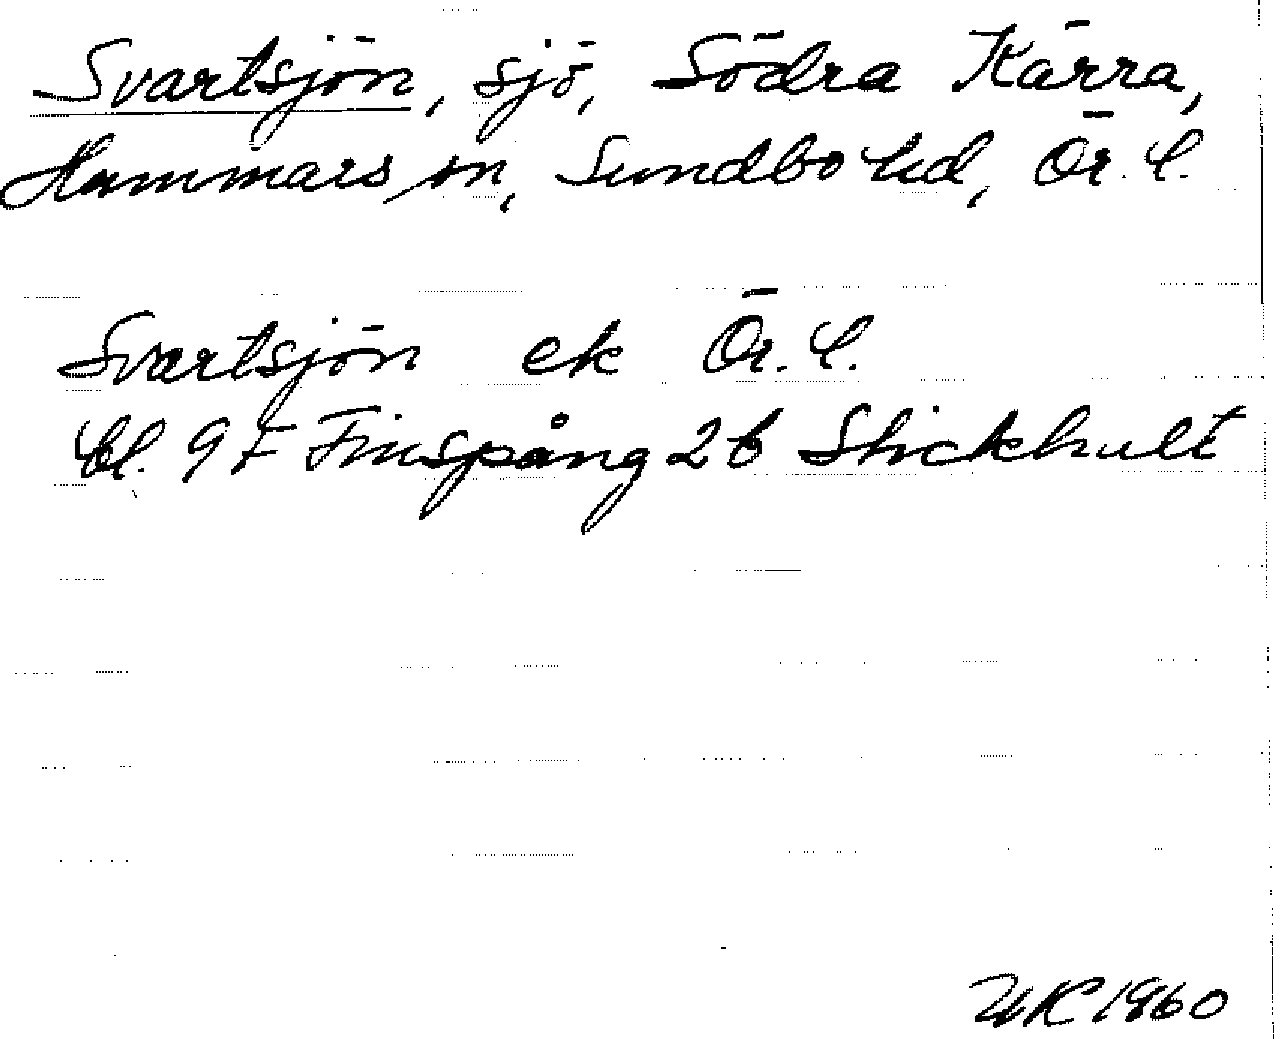 Svartsjön, sjö, Södra Kärra,
Hammars sn, Sundbo hd, Ör. l.
Svartsjön ek Ör. l.
bl. 9 F Finspång 2b Stickhult
UK 1960